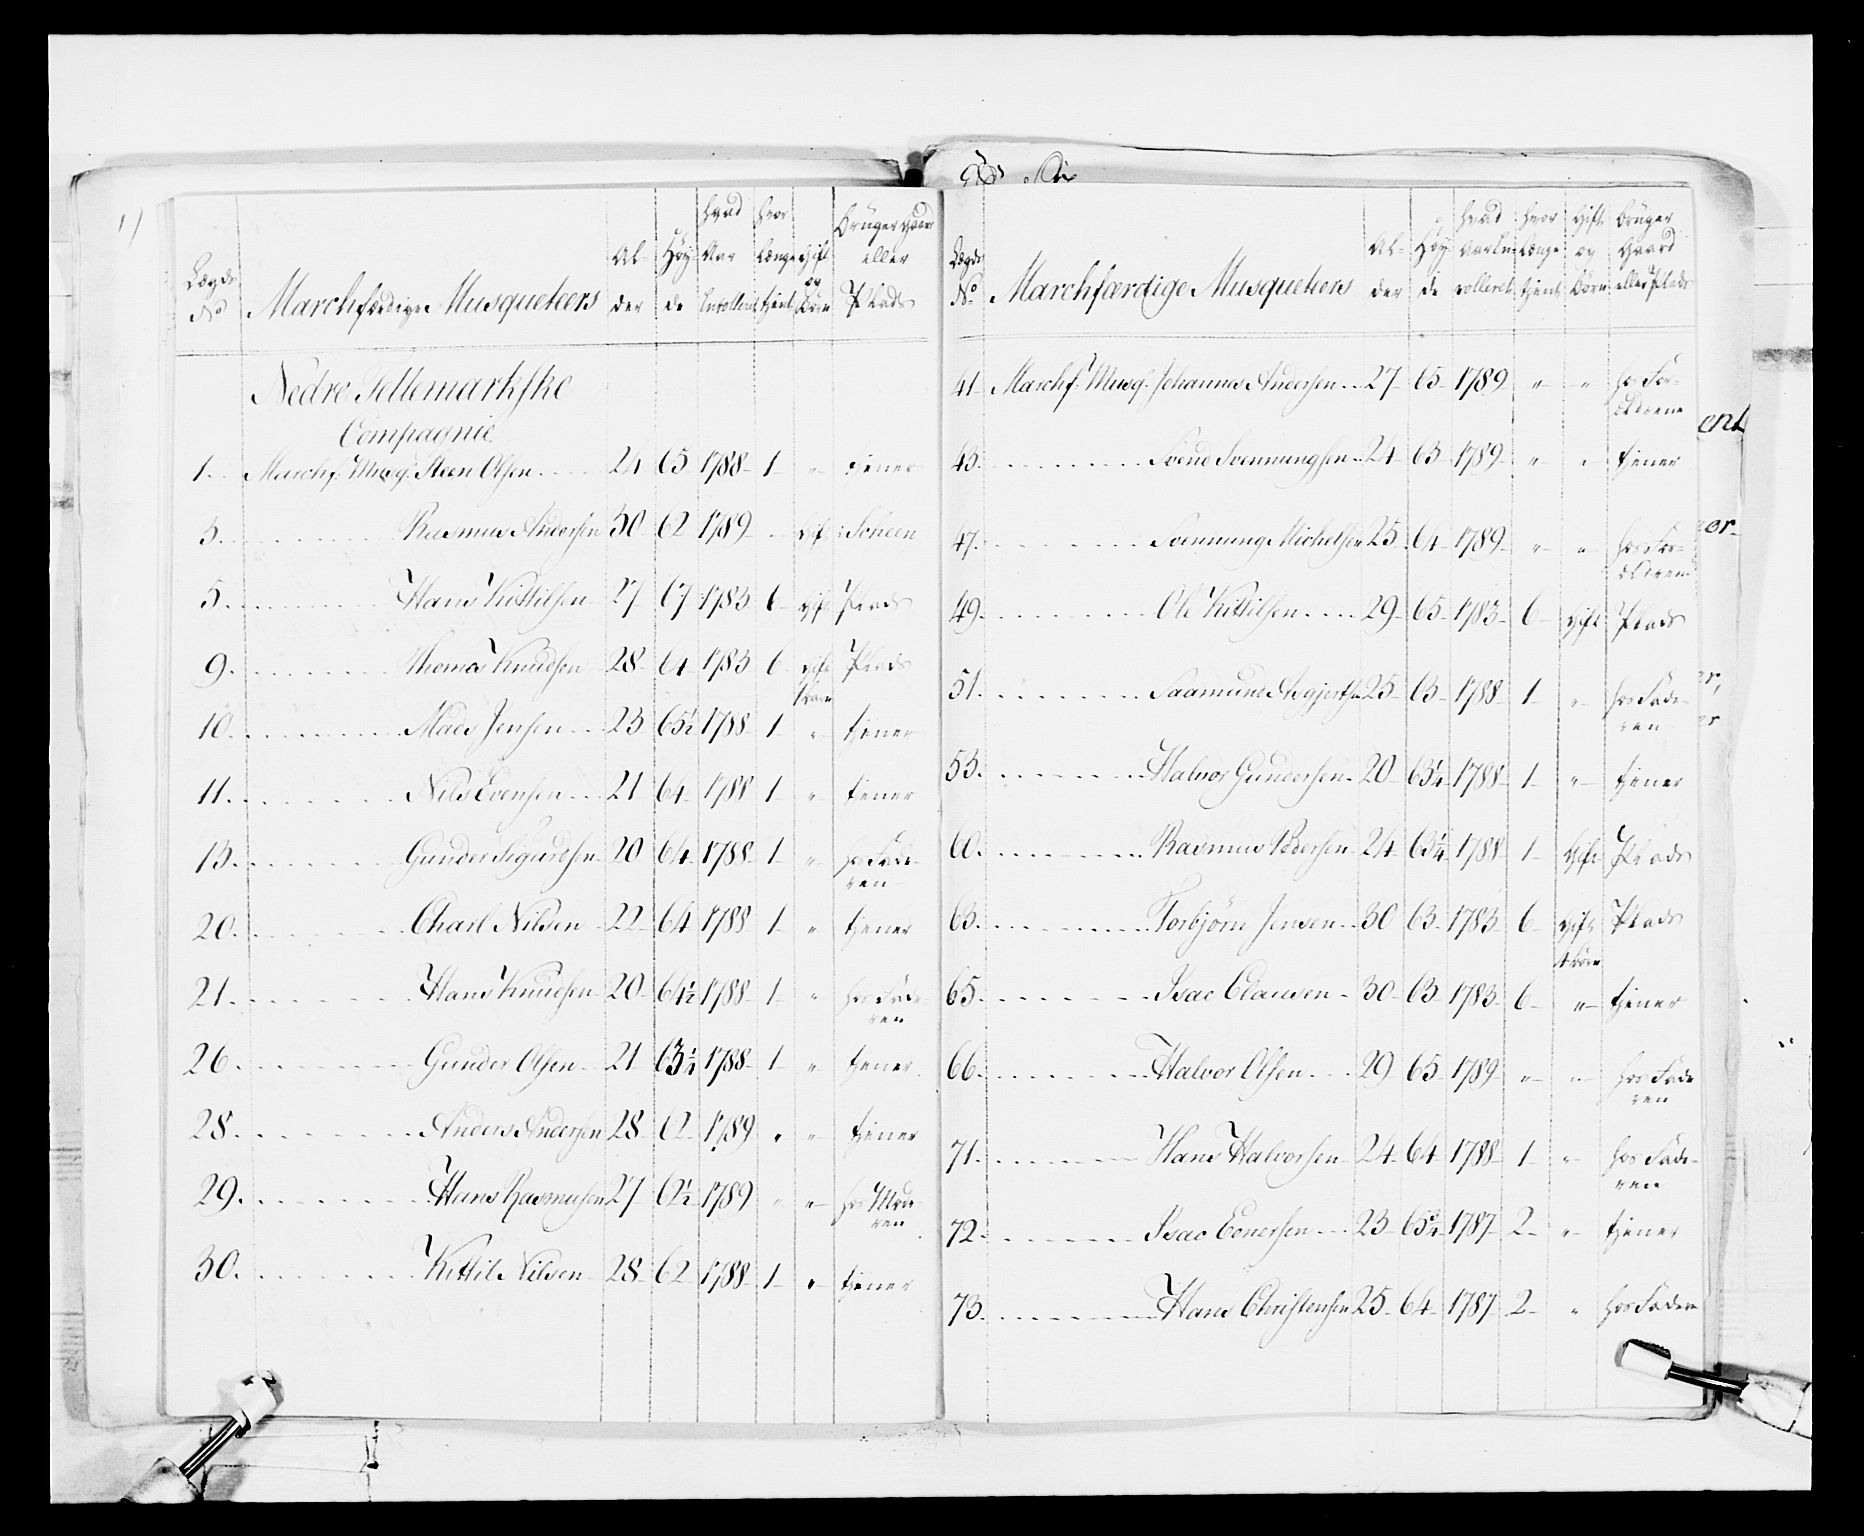 Lægds No Marchfærdige Musqueteers Al-der Høy-de hvad Aar Enrolleret hvor Længe tjent Gift og Børn Bruger Gaard eller Plads
Nedre Tellemarkske
Compagnie
1. Marchf. Musq. Steen Olsen 24 65 1788 1 " tjener
3. Rasmus Andersen 30 62 1789 gift Scheen
5. Hans Kittilsen 27 67 1783 6 gift Plads
9. Thomas Knudsen 28 64 1783 6 gift Plads
10. Mads Jensen 23 65½ 1788 1 " tjener
11. Nils Evensen 21 64 1788 1 " tjener
13. Gunder Sigurdsen 20 64 1788 1 " hos Fade-
ren
20. Charl Nilsen 22 64 1788 1 " tjener
21. Hans Knudsen 20 64½ 1788 1 " hos Fade-
ren
26. Gunder Olsen 21 63½ 1788 1 " tjener
28. Anders Andersen 28 62 1789 " " tjener
29. Hans Rasmusen 27 1789 " " hos Mode-
ren
30. Kittil Nilsen 28 62 1788 1 " tjener
Lægds No Marchfærdige Musqueteers Al-der Høy-de hvad Aar En-rolleret hvor Længe tjent Gift og Børn Bruger Gaard eller Plads
41. Marchf. Musq. Johannes Andersen 27 65 1789 " " hos For-
ældrene
43. Svend Svennungsen 24 63 1789 " " tjener
47. Svennung Michelsen 25 64 1789 " " hos For-
ældrene
49. Ole Kittilsen 29 65 1783 6 gift Plads
51. Saamund Asgjertsen 25 63 1788 1 " hos Fade-
ren
53. Halvor Gundersen 20 63¼ 1788 1 " tjener
60. Rasmus Pedersen 24 63¼ 1788 1 gift Plads
63. Torbjörn Jensen 30 63 1783 6 gift Plads
65. Isac Clausen 30 63 1783 6 " tjener
66. Halvor Olsen 29 65 1789 " " hos Fade
ren
71. Hans Halvorsen 24 64 1788 1 " hos Fade-
ren
72. Isac Evensen 23 65¾ 1787 2 " tjener
73. Hans Christensen 25 64 1787 2 " hos Faderen